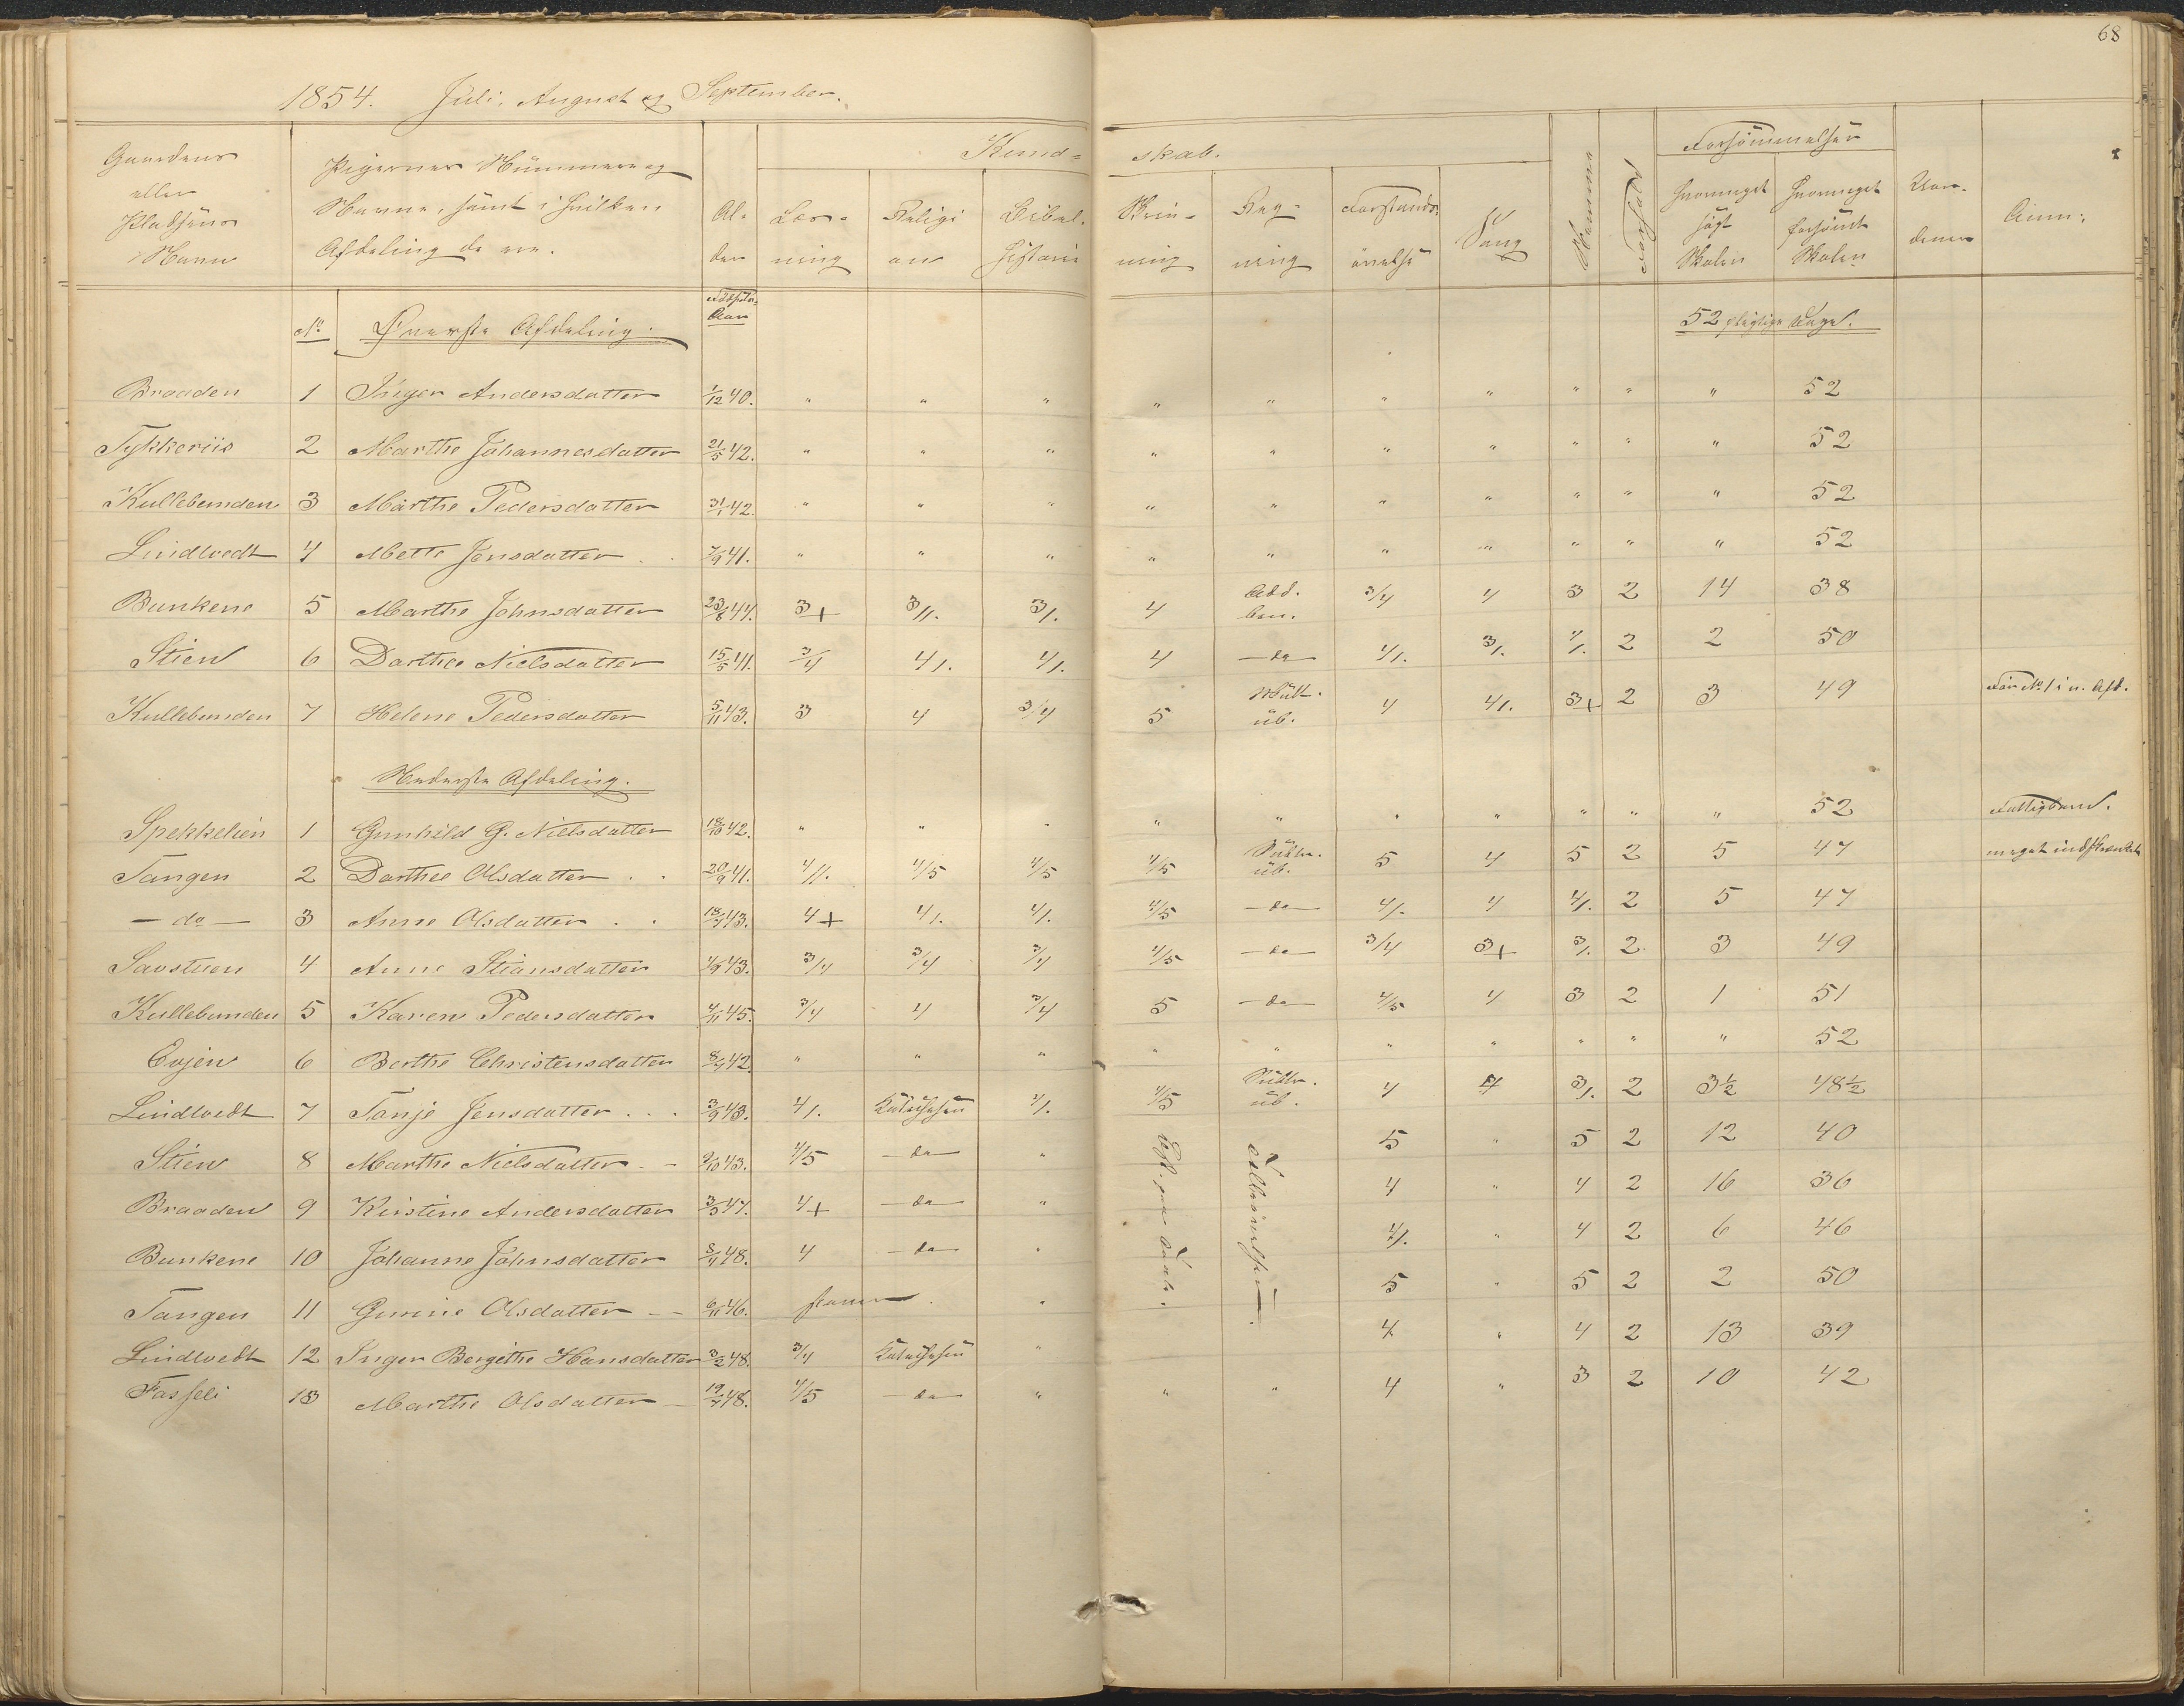 68
1854. Juli, August og September.
Gaardens eller Pladsens Navn | Pigernes Nummer og Navne, samt i hvilken Afdeling de ere. | Alder | Kundskab. | Forsömmelser
Læsning | Religion | Bibelhistorie | Skrivning | Regning | Forstandsövelse | Sang | Nemme | Forhold | hvormeget sögt Skolen | hvormeget forsömt Skolen | Anm:
No Øverste Afdeling. Födsels Aar 52 pligtige Dage.
Braaden 1 Inger Andersdatter 1/12 40. " " " " " " " " " " 52
Tykkeriis 2 Marthe Johannesdatter 21/5 42. " " " " " " " " " " 52
Kullebunden 3 Marthe Pedersdatter 31/1 42. " " " " " " " " " " 52
Lindtvedt 4 Mette Jensdatter 7/9 41. " " " " " " " " " " 52
Bunkene 5 Marthe Johnsdatter 23/6 44. 3+ 3/1. 3/. 4 Add. ben. 3/4 4 3 2 14 38
Stien 6 Darthee Nielsdatter 15/5 41. 3/4 4/. 4/. 4 — do 4/. 3/. 4/. 2 2 50
Kullebunden 7 Helene Pedersdatter 5/11 43. 3 4 3/4 5 Mult. üb. 4 4/. 3+ 2 3 49 For No 1 i n. Afd.
Nederste Afdeling.
Spekkelien 1 Gunhild G. Nielsdatter 18/10 42. " " " " " " " " " " 52 Fattigbarn.
Tangen 2 Darthee Olsdatter 20/9 41. 4//. 4/5 4/5 4/5 üb. 5 4 5 2 5 47 meget indskrænket
— do — 3 Anne Olsdatter 18/7 43. 4+ 4/. 4/. 4/5 — do — 4/. 4 4/. 2 5 47
Savstuen 4 Anne Stiansdatter 4/9 43. 3/4 3/4 3/4 4/5 — do — 3/4 3+ 3/. 2 3 49
Kullebunden 5 Karen Pedersdatter 4/11 45. 3/4 4 3/4 5 — do — 4/5 4 3 2 1 51
Evjen 6 Berthe Christensdatter 8/4 42. " " " " " " " " " " 52
Lindtvedt 7 Tanje Jensdatter 3/9 43. 4/. Katechesen 4/. 4/5 üb. 4 4 3/. 2 3½ 48½
Stien 8 Marthe Nielsdatter 2/10 43. 4/5 — do — " 5 " 5 2 12 40
Braaden 9 Kirstine Andersdatter 3/5 47. 4+ — do — " 4 " 4 2 16 36
Bunkene 10 Johanne Johnsdatter 8/4 48. 4 — do — " 4/. " 4 2 6 46
Tangen 11 Gurine Olsdatter 6/11 46. " 5 " 5 2 2 50
Lindtvedt 12 Inger Bergithe Hansdatter 3/2 48. 3/4 Katechesen " 4 " 4 2 13 39
Fasseli 13 Marthe Olsdatter 19/7 48. 4/5 — do — " " " 4 " 3 2 10 42